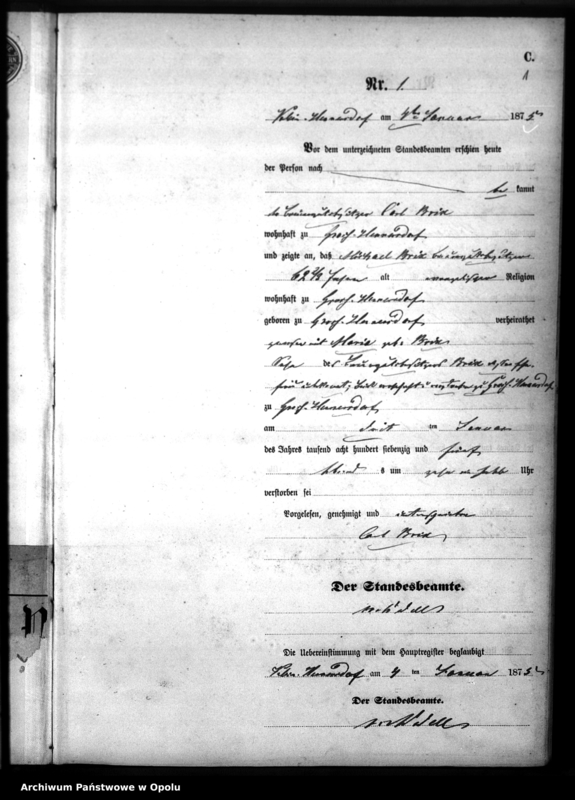 C.
1
Nr. 1.
am 4ten Januar 1875
Vor dem unterzeichneten Standesbeamten erschien heute
der Person nach
be kannt
Carl Brix
wohnhaft zu Groß-Hennersdorf
und zeigte an, daß Michael Brix
62 1/2 Jahre alt evangelischer Religion
wohnhaft zu Groß-Hennersdorf
geboren zu Groß-Hennersdorf verheirathet
gewesen mit Maria geb. Brix
Sohn des Brix
zu Groß-Hennersdorf
zu Groß-Hennersdorf
am dritten Januar
des Jahres tausend acht hundert siebenzig und fünf
Abends um zehn ein halb Uhr
verstorben sei
Vorgelesen, genehmigt und
Carl Brix
Der Standesbeamte.
Die Uebereinstimmung mit dem Hauptregister beglaubigt
am 4 ten Januar 1875
Der Standesbeamte.
Archiwum Państwowe w Opolu